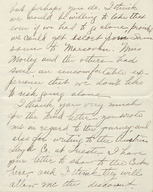 but perhaps you do. I think
we would be willing to take this
even if we had to go alone
we could get
soon to Marsovan. Miss
Morley and the others had
such an uncomfortable exp-
erience that we don't like
to risk going alone.
I thank you very much
for the kind letter you wrote
me in regard to the journey and
also for writing to the
Co. at I
your letter to show to the
and I think they will
allow me the discount